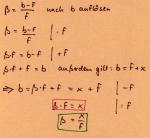 β = b-f/f nach b auflösen
β = b-f/f | · f
β·f = b-f | +f
β·f + f = b außerdem gilt: b = f+x
⇒ b = β·f + f = x + f | -f
β·f = x | :f
β = x/f